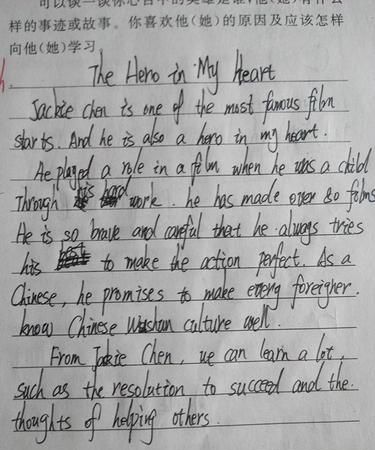 可以谈一谈你心目中的英雄是谁,他(她)有什么
样的事迹或故事。你喜欢他(她)的原因及应该怎样
向他(她)学习。
The Hero in My Heart
Jackie Chen is one of the most famous film
starts. And he is also a hero in my heart.
He played a role in a film when he was a child
Through his hard work. he has made over 80 films
He is so brave and careful that he always tries
his to make the action perfect. As a
Chinese, he promises to make every foreigner.
know Chinese Wushun culture well.
From Jackie Chen, we can learn a lot,
such as the resolution to succeed and the
thoughts of helping others.